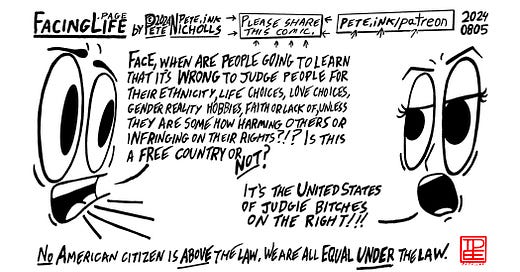 FACINGLIFE PAGE
BY ©2024 PETE.INK PETE NICHOLLS
PLEASE SHARE
THIS COMIC.
PETE.INK/patreon
2024
0805
FACE, WHEN ARE PEOPLE GOING TO LEARN
THAT IT'S WRONG TO JUDGE PEOPLE FOR
THEIR ETHNICITY, LIFE CHOICES, LOVE CHOICES,
GENDER REALITY HOBBIES, FAITH OR LACK OF, UNLESS
THEY ARE SOME HOW HARMING OTHERS OR
INFRINGING ON THEIR RIGHTS?!? IS THIS
A FREE COUNTRY OR
NOT?
IT'S THE UNITED STATES
OF JUDGIE BITCHES
ON THE RIGHT!!!
NO AMERICAN CITIZEN IS ABOVE THE LAW. WE ARE ALL EQUAL UNDER THE LAW.